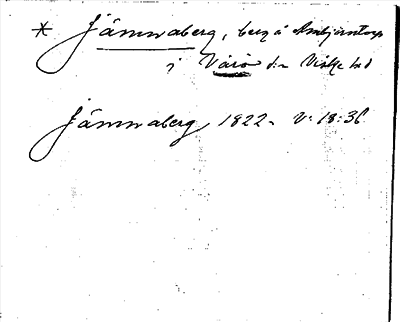 * Jämnaberg, berg å Ambjörntorp
i Värö sn Viske hd
Jämnaberg 1822. V: 18:36